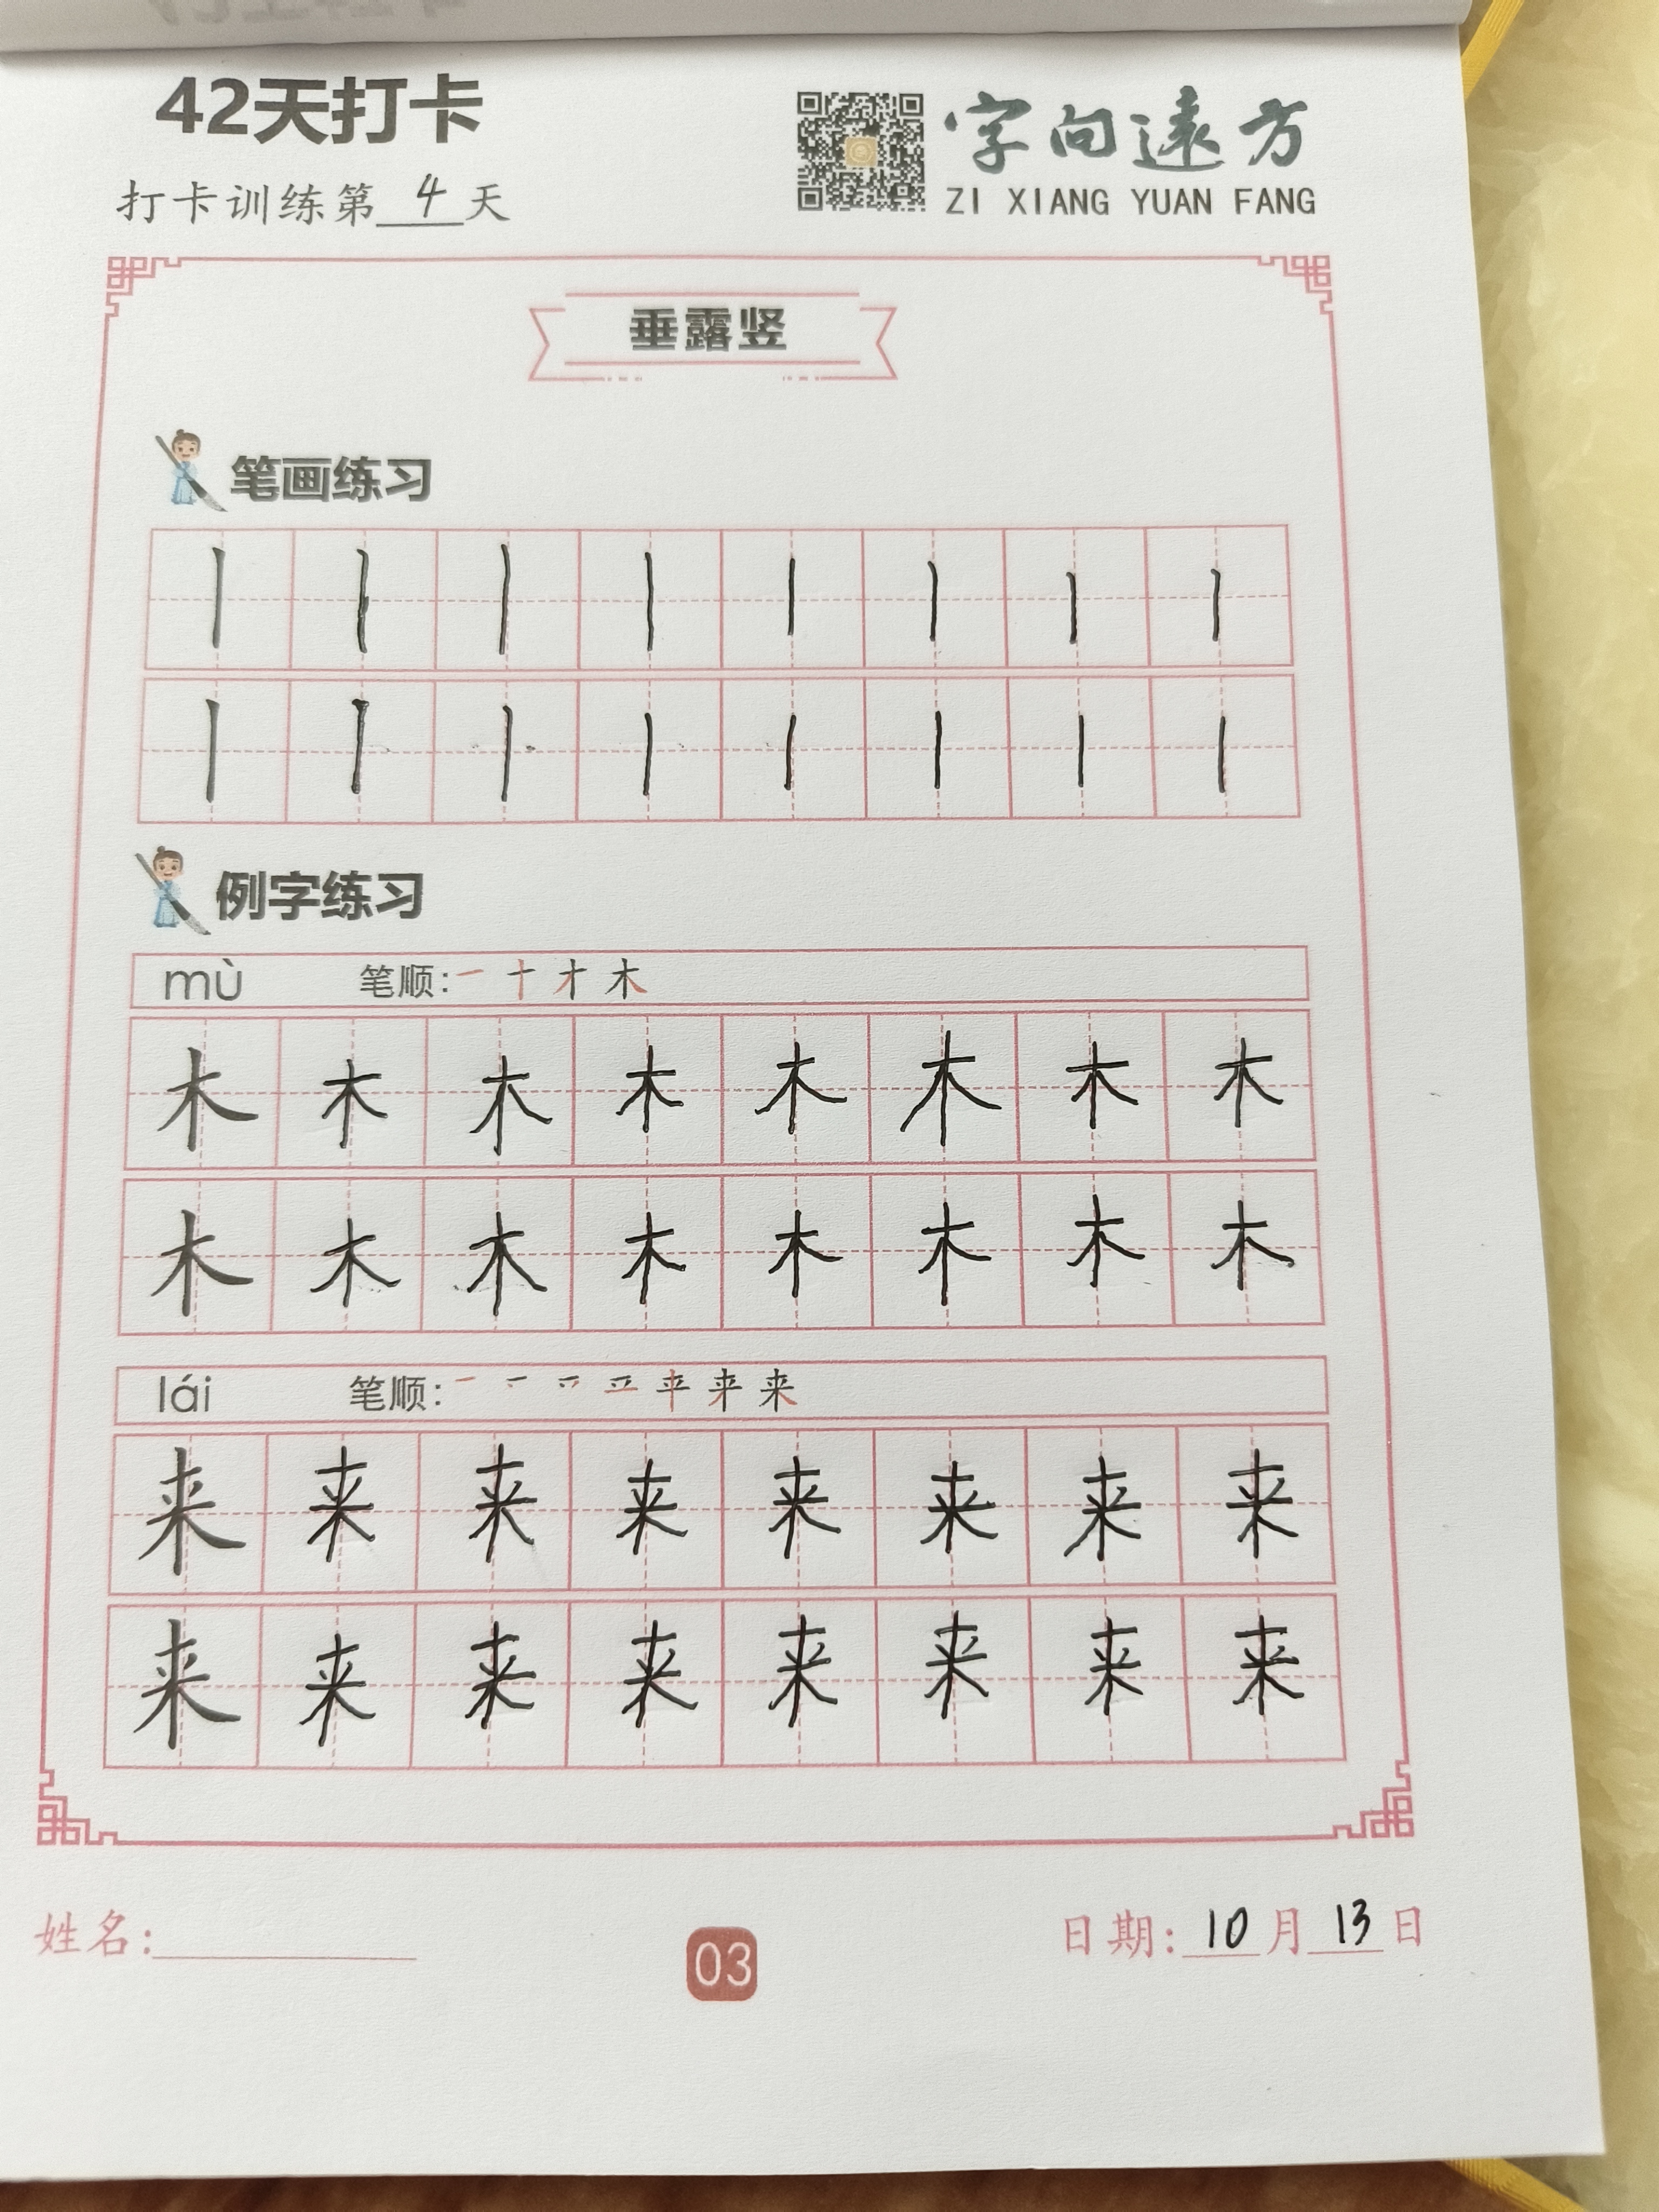 42天打卡
字向遠方
打卡训练第4天
ZI XIANG YUAN FANG
垂露竖
笔画练习
丨 丨 丨 丨 丨 丨 丨 丨
丨 丨 丨 丨 丨 丨 丨 丨
例字练习
mù 笔顺: 一 十 才 木
木 木 木 木 木 木 木 木
木 木 木 木 木 木 木 木
lái 笔顺: 来
来 来 来 来 来 来 来 来
来 来 来 来 来 来 来 来
姓名:
03
日期: 10月13日